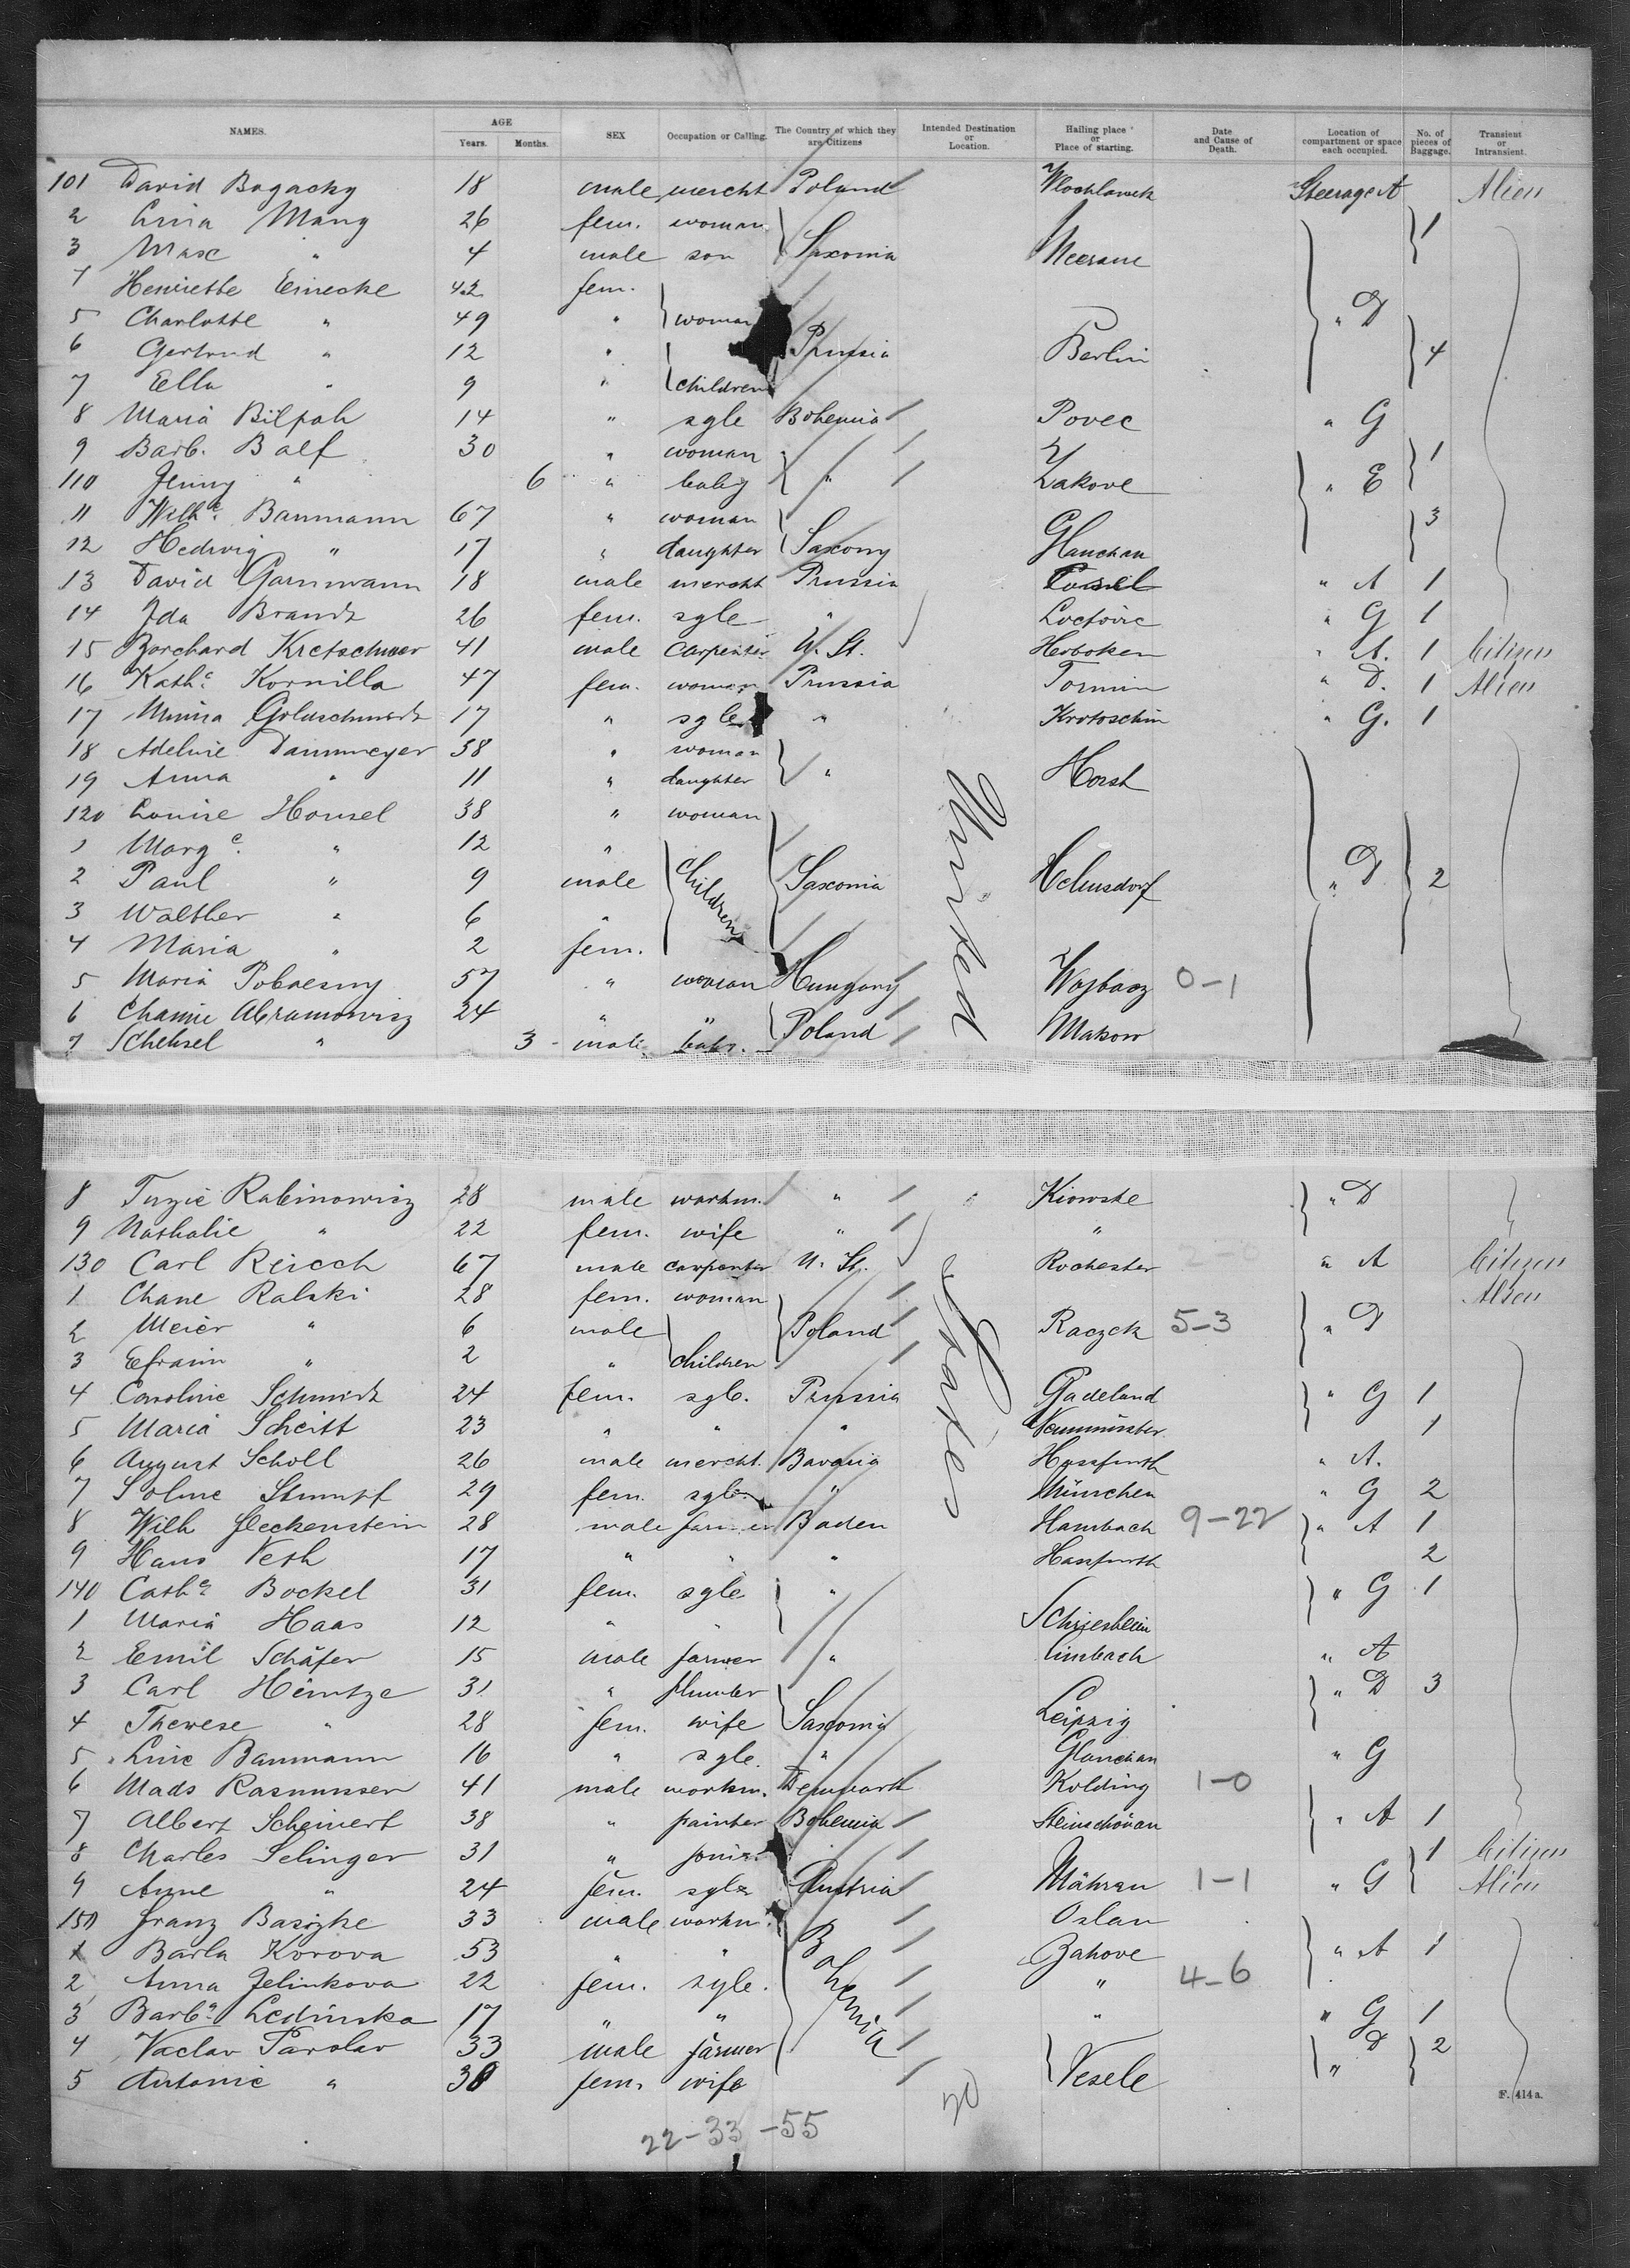 NAMES. AGE Years. Months. SEX Occupation or Calling. The Country of which they are Citizens Intended Destination or Location. Hailing place or Place of starting. Date and Cause of Death. Location of compartment or space each occupied. No. of pieces of Baggage. Transient or Intransient.
101 David Bogacky 18 male mercht Poland Wloclawek Steerage A Alien
2 Mang 26 fem. woman 1
3 Max " 4 male son Saxonia Meerane
4 Henriette Einecke 42 fem.
5 Charlotte " 49 " woman " D
6 Gertrud " 12 " Prussia Berlin 4
7 Ella " 9 " children
8 Maria Bilpah 14 " sgle Bohemia Povec " G
9 Barb. Balf 30 " woman 1
110 Jenny " 6 " baby " Zakove " E
11 Wilhe. Baumann 67 " woman 3
12 Hedwig " 17 " daughter Saxony Glauchau
13 David Garnmann 18 male mercht Prussia " A 1
14 Ida Brandt 26 fem. sgle " " G 1
15 Borchard Kretschmer 41 male carpenter U. St. Hoboken " A. 1 Citizen
16 Kathe Kornilla 47 fem. woman Prussia Tormin " D. 1 Alien
17 Minna Goldschmidt 17 " sgle " Krotoschin " G. 1
18 Adeline Dammeyer 38 " woman
19 Anna " 11 " daughter " Horst
120 Louise Honsel 38 " woman
1 Marge. " 12 "
2 Paul " 9 male children Saxonia Helmsdorf " D 2
3 Walther " 6 "
4 Maria " 2 fem.
5 Maria Pobaesny 57 " woman Hungary Wojbasz 0-1
6 Chamie Abramowisz 24 " " Poland Makow
7 Schebsel " 3 male baby.
United
8 Rabinowisz 28 male workm. " Kiowske " D
9 Nathalie " 22 fem. wife " "
130 Carl Reisch 67 male carpenter U. St. Rochester " A Citizen
1 Chane Ralski 28 fem. woman Alien
2 Meier " 6 male Poland Raczek 5-3 " D
3 Efraim " 2 " children
4 Caroline Schmidt 24 fem. sgle. Prussia Gadeland " G 1
5 Maria Scheitt 23 " " " Neumünster 1
6 August Scholl 26 male mercht. Bavaria Hassfurth " A.
7 Stumpf 29 fem. sgle " München " G 2
8 Wilh Fleckenstein 28 male farmer Baden Hambach 9-22 " A 1
9 Hans Veth 17 " " " Hassfurth 2
140 Cathe Bockel 31 fem. sgle " " G 1
1 Maria Haas 12 " " Schriesheim
2 Emil Schäfer 15 male farmer " Limbach " A
3 Carl Heintze 31 " plumber " D 3
4 Therese " 28 fem. wife Saxonia Leipzig
5 Line Baumann 16 " sgle. " Glauchau " G
6 Mads Rasmussen 41 male workm. Denmark Kolding 1-0
7 Albert Scheinert 38 " painter Bohemia Steinschönau " A 1
8 Charles Selinger 31 " 1 Citizen
9 Anne " 24 fem. sgle Austria Mähren 1-1 " G Alien
150 Franz Basizke 33 male workm. Oslan
1 Barla Korova 53 " " Bohemia Bahove " A 1
2 Anna Jelinkova 22 fem. sgle. " 4-6
3 Barba Ledinska 17 " " " " G 1
4 Vaclav Parolav 33 male farmer " D 2
5 Antonie " 30 fem. wife Vesele
States
20
F. 414 a.
22-33-55